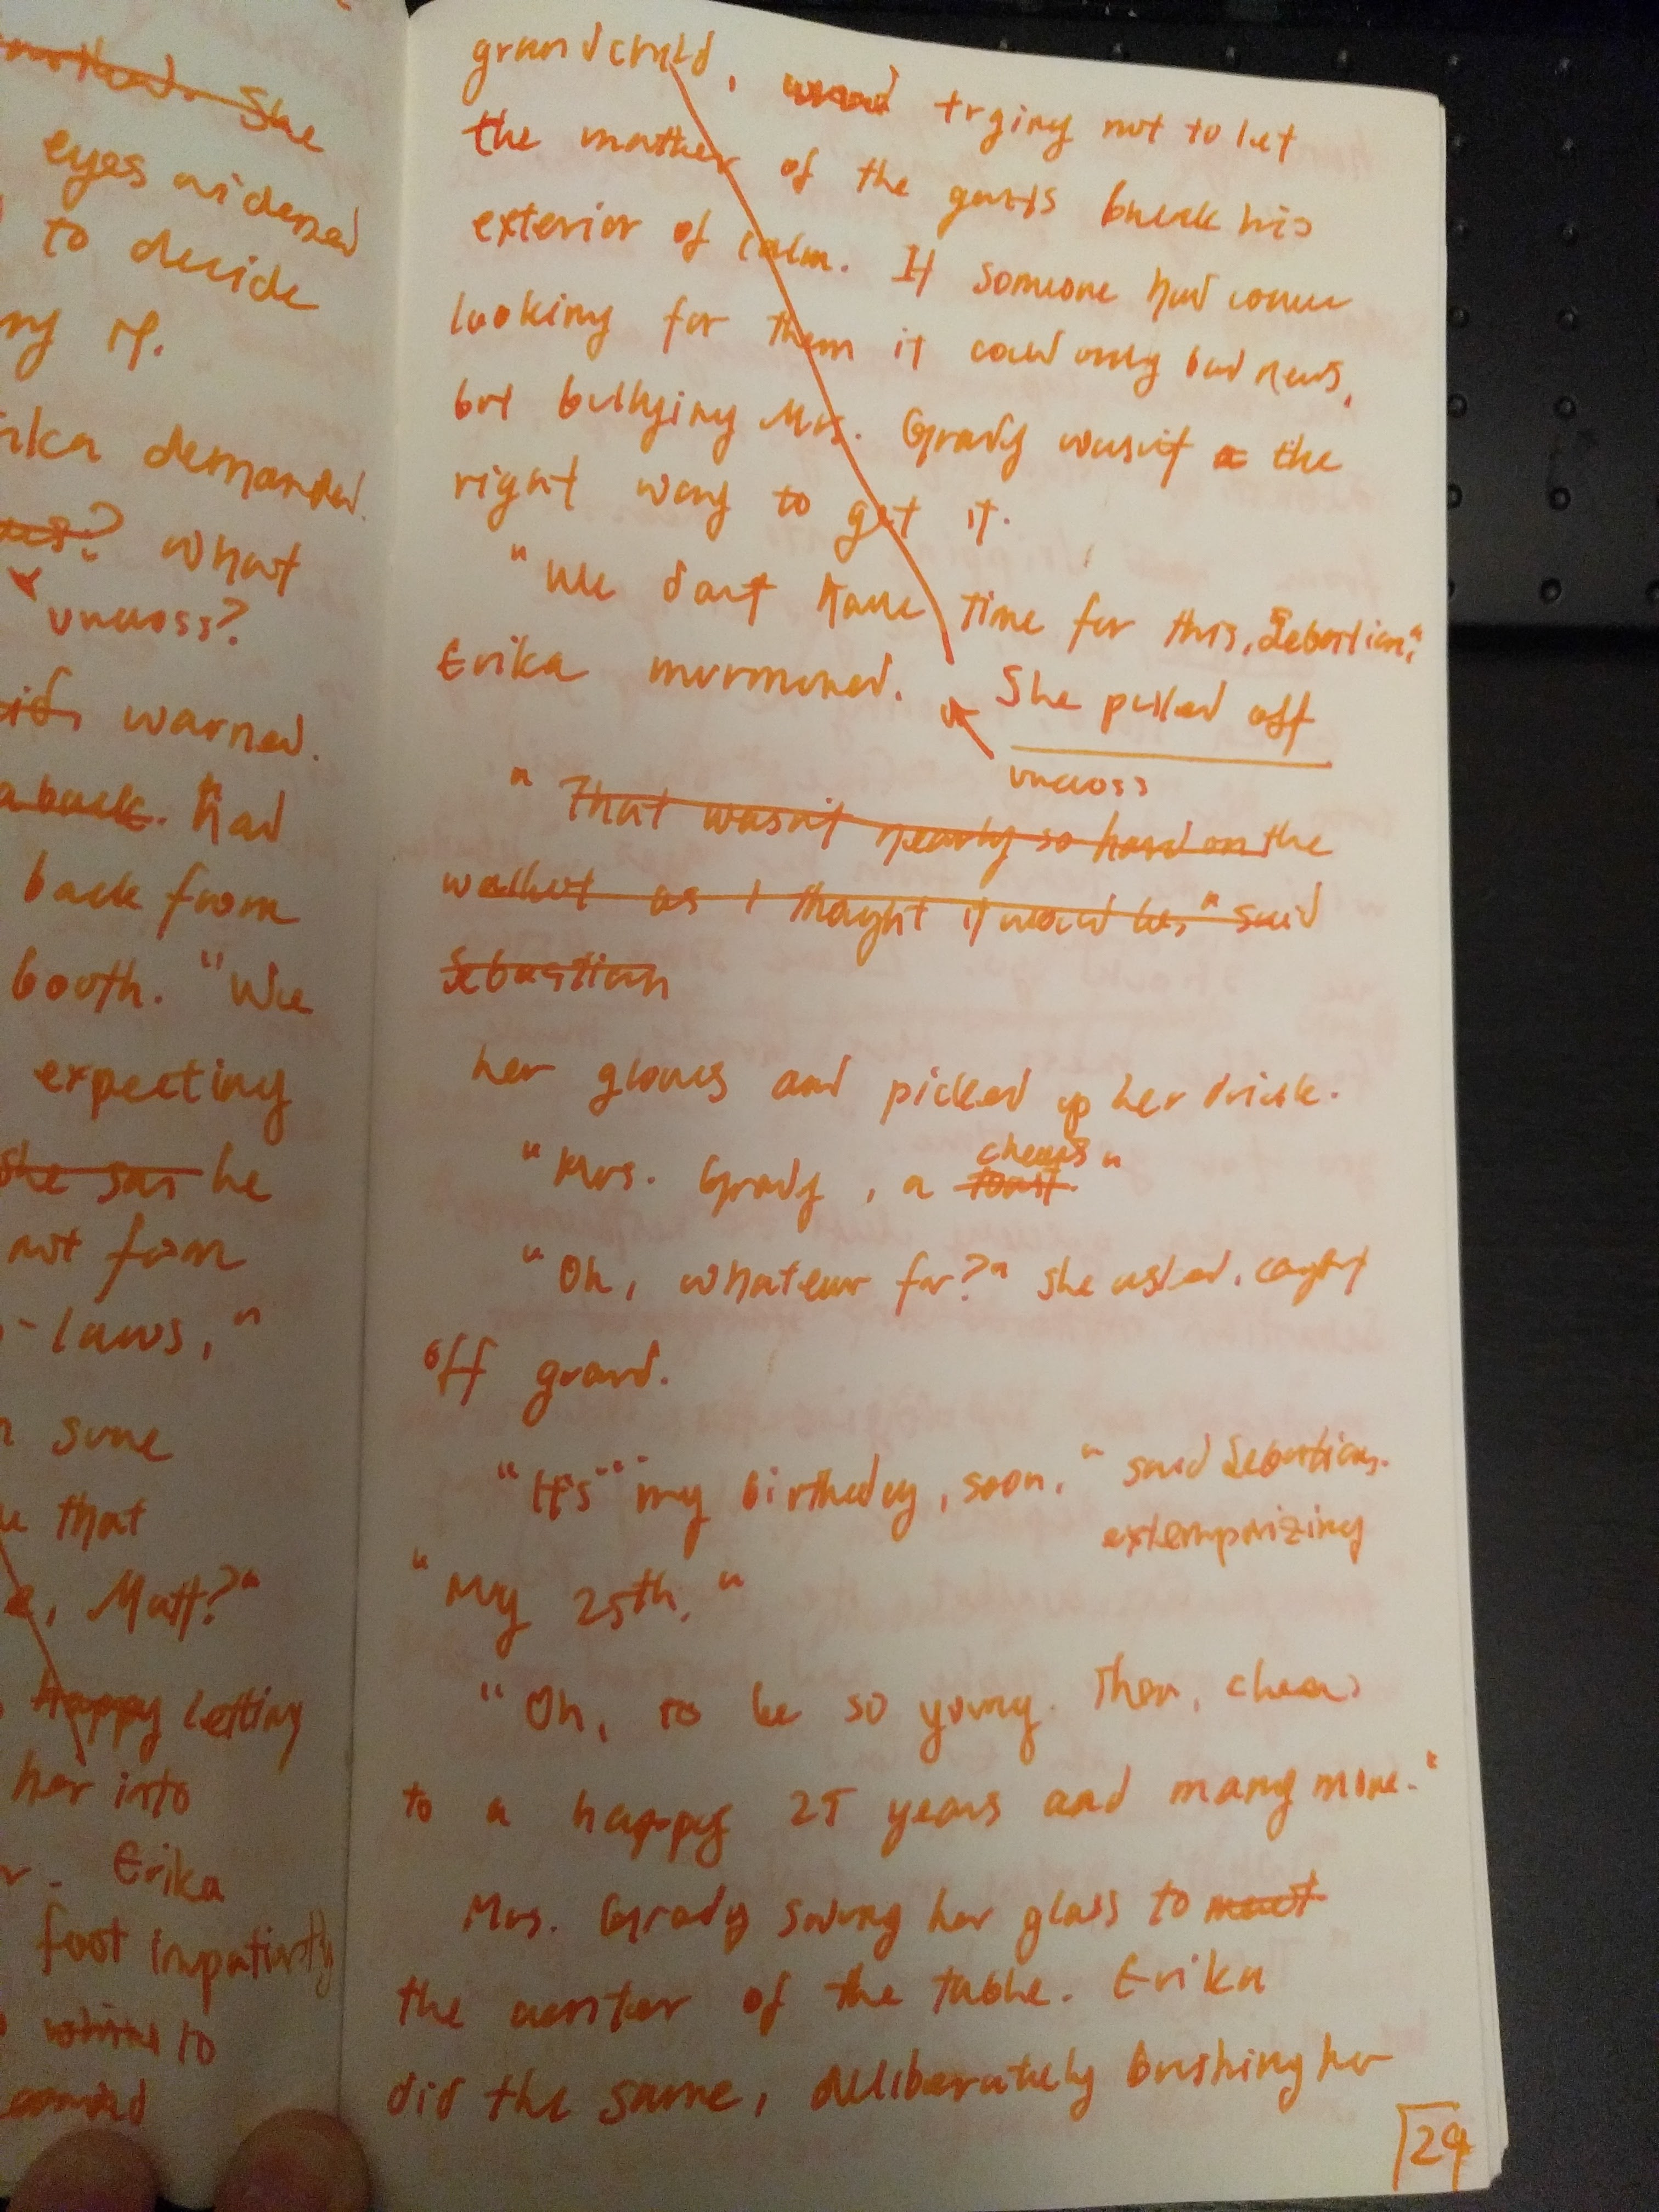 She
eyes widened
to decide
demanded.
What
uncross?
warned.
aback. Had
back from
booth. "We
expecting
she sat he
not from
-laws,"
sure
that
, Matt?"
Happy Letting
her into
Erika
foot impatiently
to
grandchild, trying not to let
the mother of the gents break his
exterior of calm. If someone had come
looking for them it could only bad news,
but bullying Mrs. Grady wasn't a the
right way to get it.
"We don't have time for this, Sebastian,"
Erika murmured. She pulled off
uncross
"That wasn't nearly so hard on the
wallet as I thought it would be," said
Sebastian
her gloves and picked up her drink.
cheers
"Mrs. Grady, a toast."
"Oh, whatever for?" she asked, caught
off guard.
"It's... my birthday, soon," said Sebastian,
extemporizing
"My 25th."
"Oh, to be so young. Then, cheers
to a happy 25 years and many more."
Mrs. Grady swung her glass to meet
the center of the table. Erika
did the same, deliberately brushing her
29